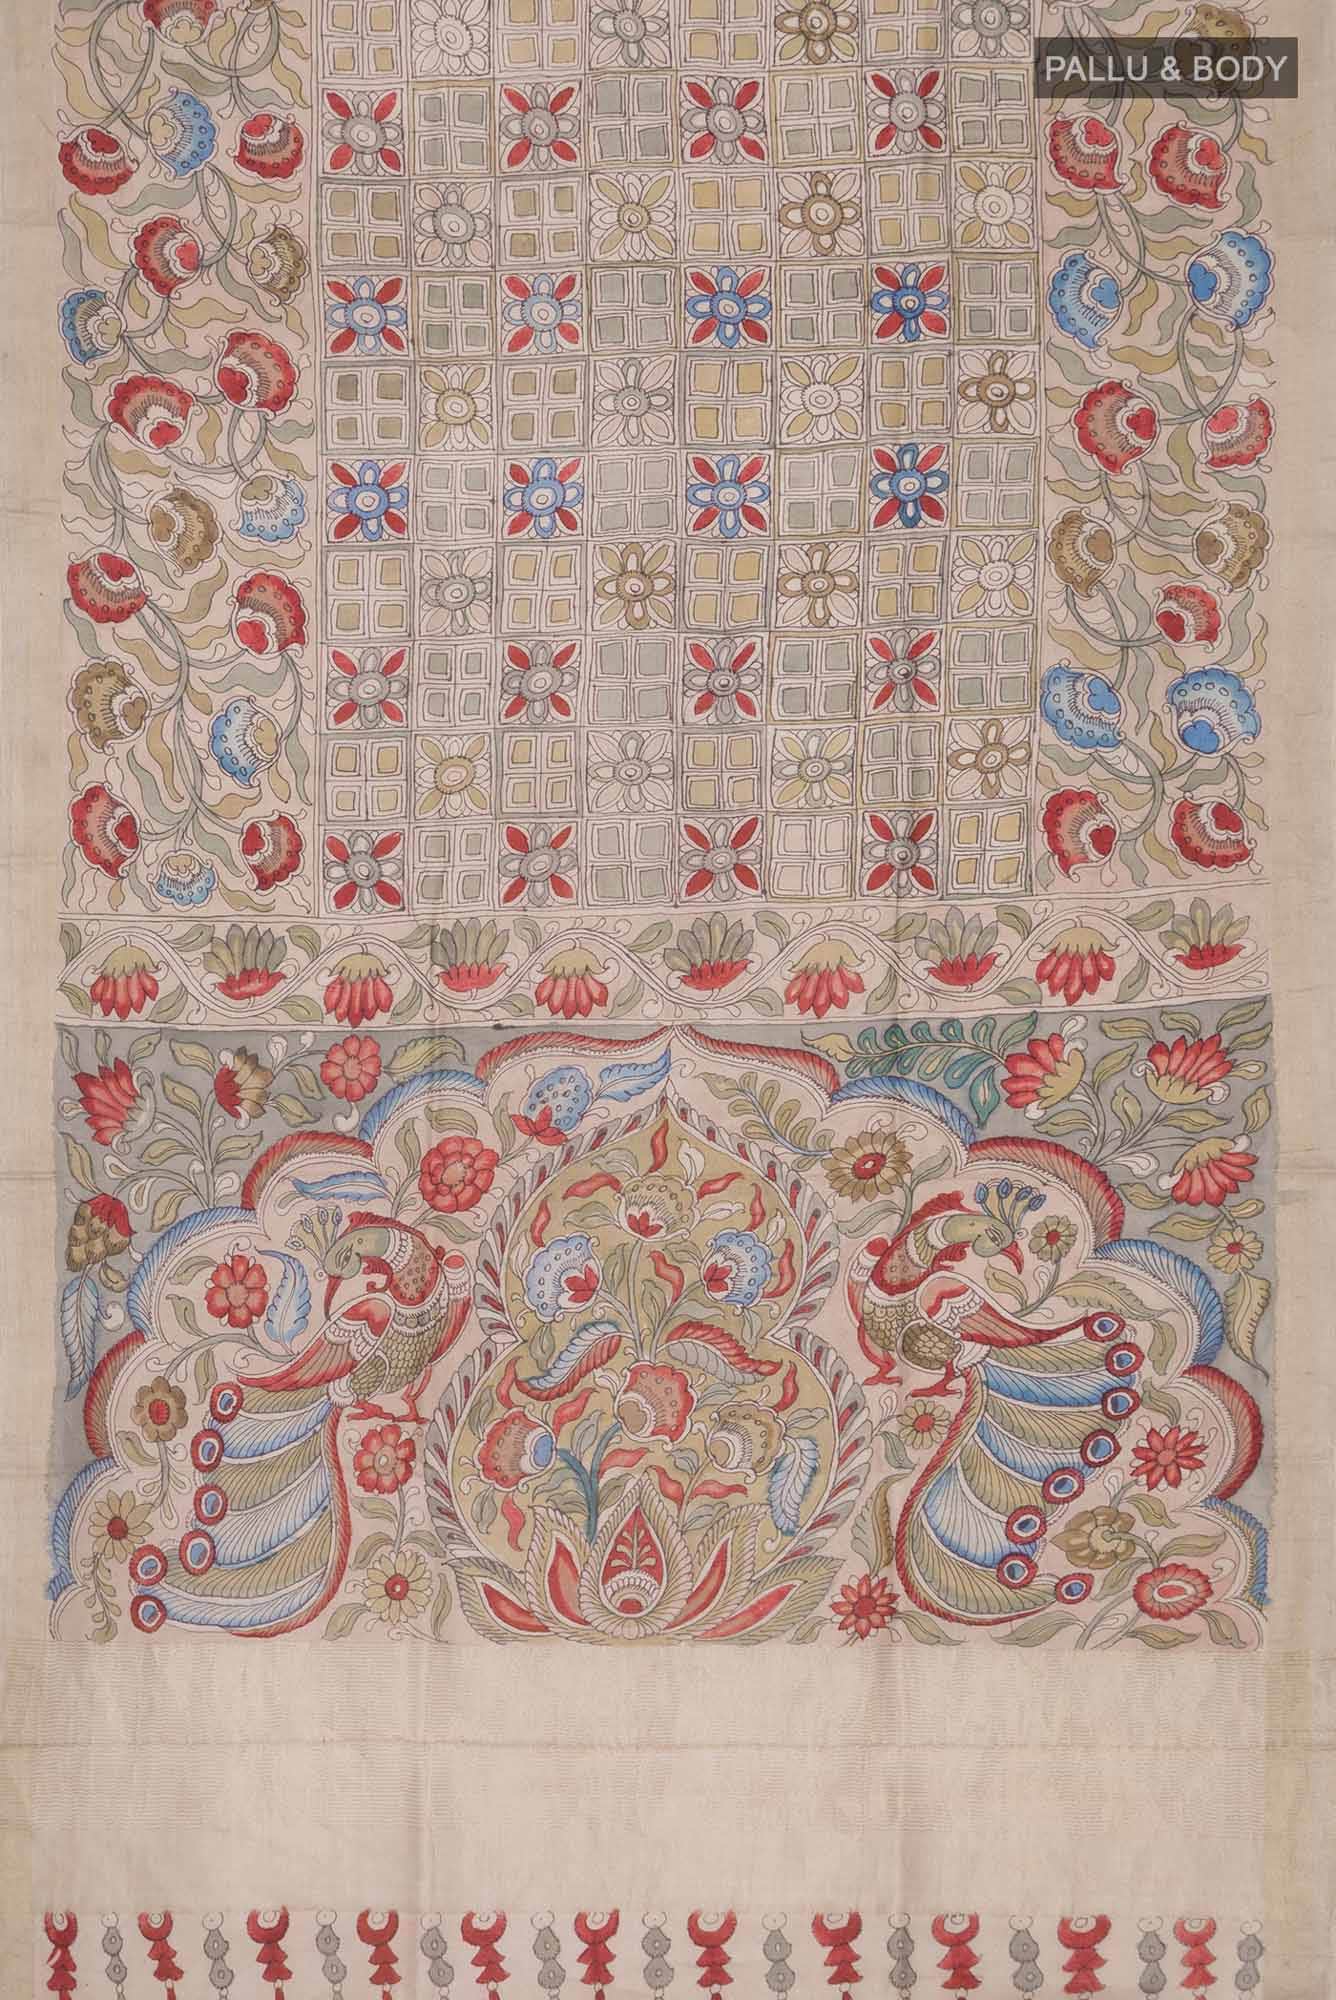 PALLU & BODY